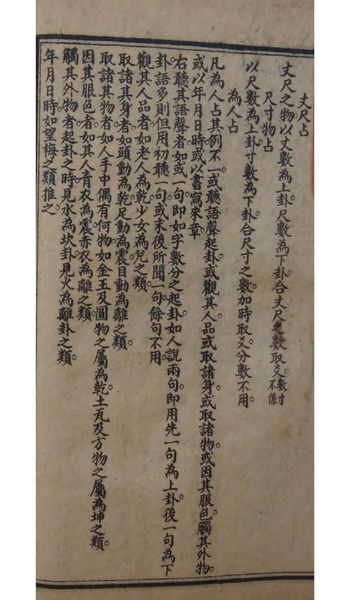 丈尺占
丈尺之物以丈數為上卦尺數為下卦合丈尺之數取爻。寸數不係
尺寸物占
以尺數為上卦寸數為下卦合尺寸之數加時取爻分數不用。
為人占
凡為人占其例不一。或聽語聲起卦或觀其人品或取諸身或取諸物或因其服色觸其外物。
或以年月日時或以書寫來意
右聽其語聲者如或一句即如字數分之起卦如人說兩句即用先一句為上卦後一句為下
卦語多則但用初聽一句或末後所聞一句餘句不用。
觀其人品者如老人為乾少女為兌之類。
取諸其身者如頭動為乾足動為震目動為離之類。
取諸其物者如人手中偶有何物如金玉及圓物之屬為乾土瓦及方物之屬為坤之類。
因其服色者如其人青衣為震赤衣為離之類。
觸其外物者起卦之時見水為坎卦見火為離卦之類。
年月日時如望梅之類推之。